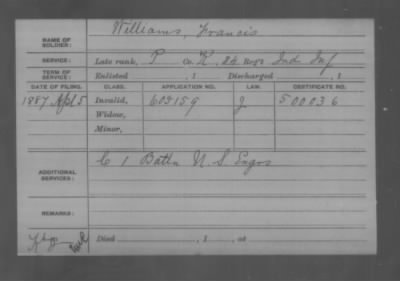 Williams, Francis
NAME OF SOLDIER:
SERVICE: Late rank, P Co. K, 24 Reg't Ind Inf
TERM OF SERVICE: Enlisted , 1 Discharged , 1
DATE OF FILING. CLASS. APPLICATION NO. LAW. CERTIFICATE NO.
1887 Apl 5 Invalid, 603159 J. 500036
Widow,
Minor,
C 1 Battn U. S. Engrs
ADDITIONAL SERVICES:
REMARKS:
Died , 1 , at